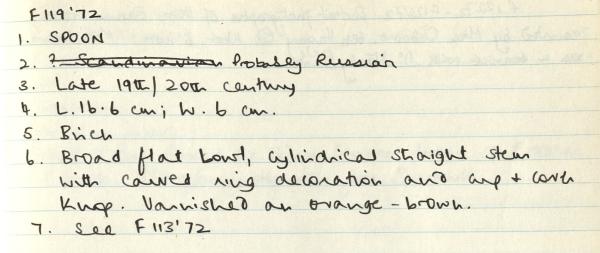 F119'72
1. SPOON
2. ? Scandinavian Probably Russian
3. Late 19th/20th century
4. L.16.6 cm; W. 6 cm.
5. Birch
6. Broad flat bowl, cylindrical straight stem
with carved ring decoration and cup + cover
Knop. Varnished an orange-brown.
7. See F113'72